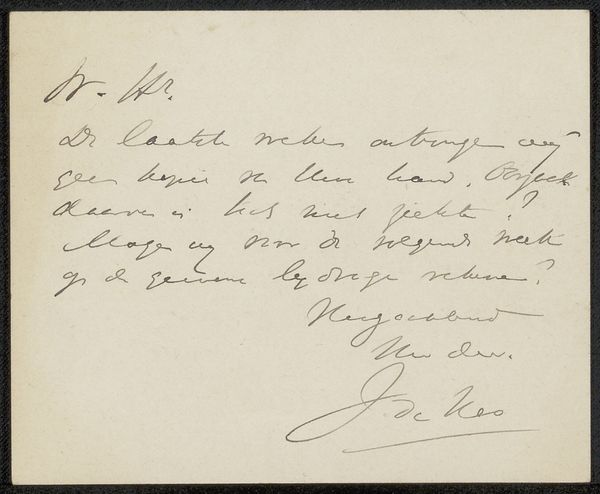 W. Hr.
De laatste weken ontvingen wij
geen kopie van Uwe hand. Oorzaak
daarvan is toch niet ziekte?
Mogen wij voor de volgende week
op de gewone bijdrage rekenen?
Hoogachtend
Uw dw.
J. de